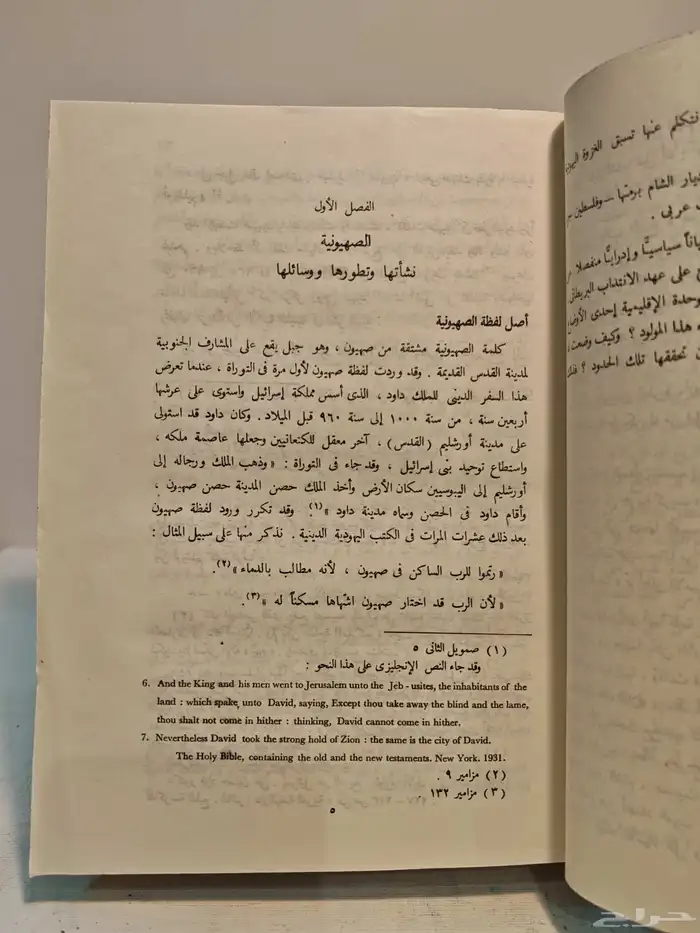 الفصل الأول
الصهيونية
نشأتها وتطورها ووسائلها
أصل لفظة الصهيونية
كلمة الصهيونية مشتقة من صهيون ، وهو جبل يقع على المشارف الجنوبية
لمدينة القدس القديمة . وقد وردت لفظة صهيون لأول مرة فى التوراة ، عندما تعرض
هذا السفر الدينى للملك داود ، الذى أسس مملكة إسرائيل واستوى على عرشها
أربعين سنة ، من سنة ١٠٠٠ إلى سنة ٩٦٠ قبل الميلاد . وكان داود قد استولى
على مدينة أورشليم (القدس) ، آخر معقل للكنعانيين وجعلها عاصمة ملكه ،
واستطاع توحيد بنى إسرائيل ، وقد جاء فى التوراة : «وذهب الملك ورجاله إلى
أورشليم إلى اليبوسيين سكان الأرض وأخذ الملك حصن المدينة حصن صهيون ،
وأقام داود فى الحصن وسماه مدينة داود »(١). وقد تكرر ورود لفظة صهيون
بعد ذلك عشرات المرات فى الكتب اليهودية الدينية . نذكر منها على سبيل المثال :
« رنموا للرب الساكن فى صهيون ، لأنه مطالب بالدماء »(٢).
« لأن الرب قد اختار صهيون اشتهاها مسكناً له »(٣).
(١) صمويل الثانى ٥
وقد جاء النص الإنجليزى على هذا النحو :
6. And the King and his men went to Jerusalem unto the Jeb - usites, the inhabitants of the
land : which spake unto David, saying, Except thou take away the blind and the lame,
thou shalt not come in hither : thinking, David cannot come in hither.
7. Nevertheless David took the strong hold of Zion : the same is the city of David.
The Holy Bible, containing the old and the new testaments. New York. 1931.
(٢) مزامير ٩ .
(٣) مزامير ١٣٢ .
٥
فتكلم عنها تسبق الغزوة
ديار الشام برمتها – وفلسطين
عربى .
سياسيًّا وإداريًّا منفصلا
على عهد الانتداب
الإقليمية إحدى
هذا المولود ؟ وكيف وضعت
تحققها تلك الحدود ؟
حراج